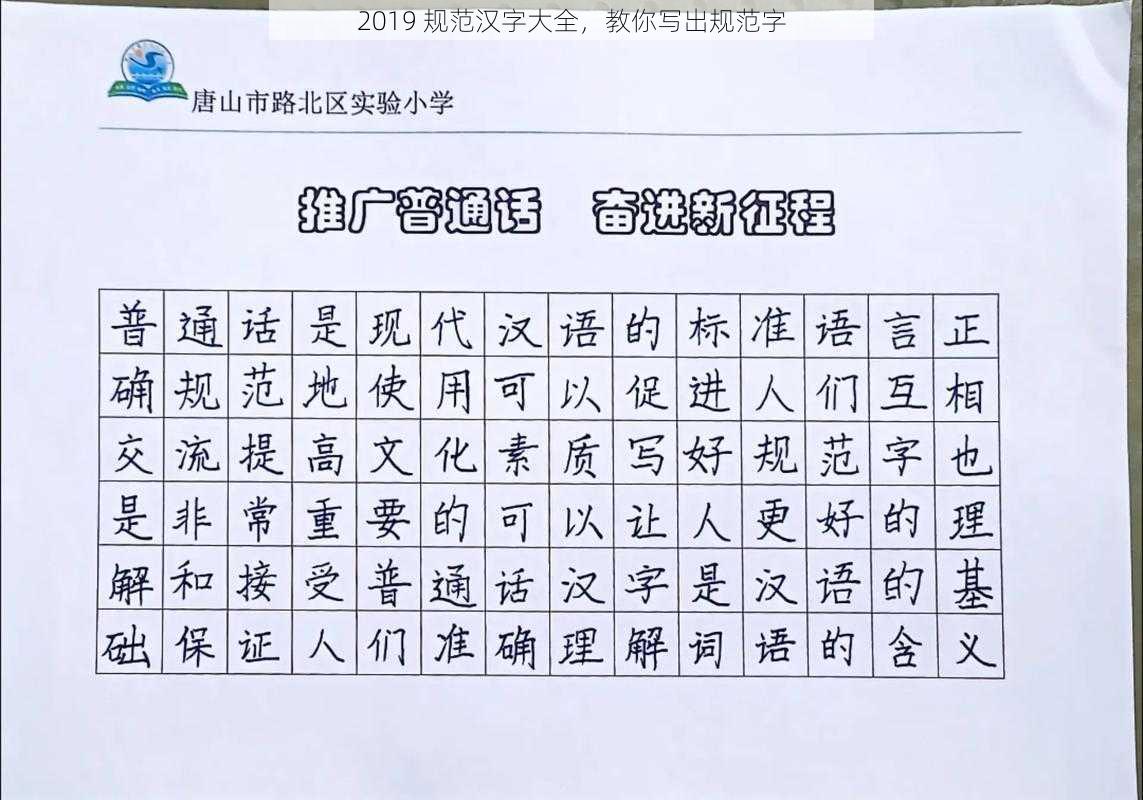 2019 规范汉字大全，教你写出规范字
唐山市路北区实验小学
推广普通话 奋进新征程
普通话是现代汉语的标准语言正
确规范地使用可以促进人们互相
交流提高文化素质写好规范字也
是非常重要的可以让人更好的理
解和接受普通话汉字是汉语的基
础保证人们准确理解词语的含义